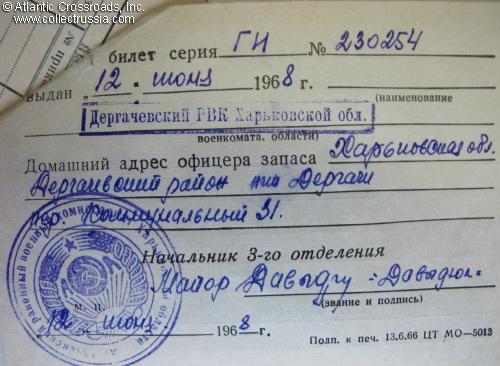 © Atlantic Crossroads, Inc.
www.collectrussia.com
№ прик
билет серия ГН № 230254
выдан „12„ июня 1968 г.
(наименование
Дергачевский РВК Харьковской обл.
военкомата, области)
Домашний адрес офицера запаса Харьковская обл.
Дергачевский район пгт Дергачи
пер. Коммунальный 31.
Начальник 3-го отделения
Майор Давыдюк
(звание и подпись)
М. П.
„12„ июня 1968 г.
Подп. к печ. 13.6.66 ЦТ МО—5013